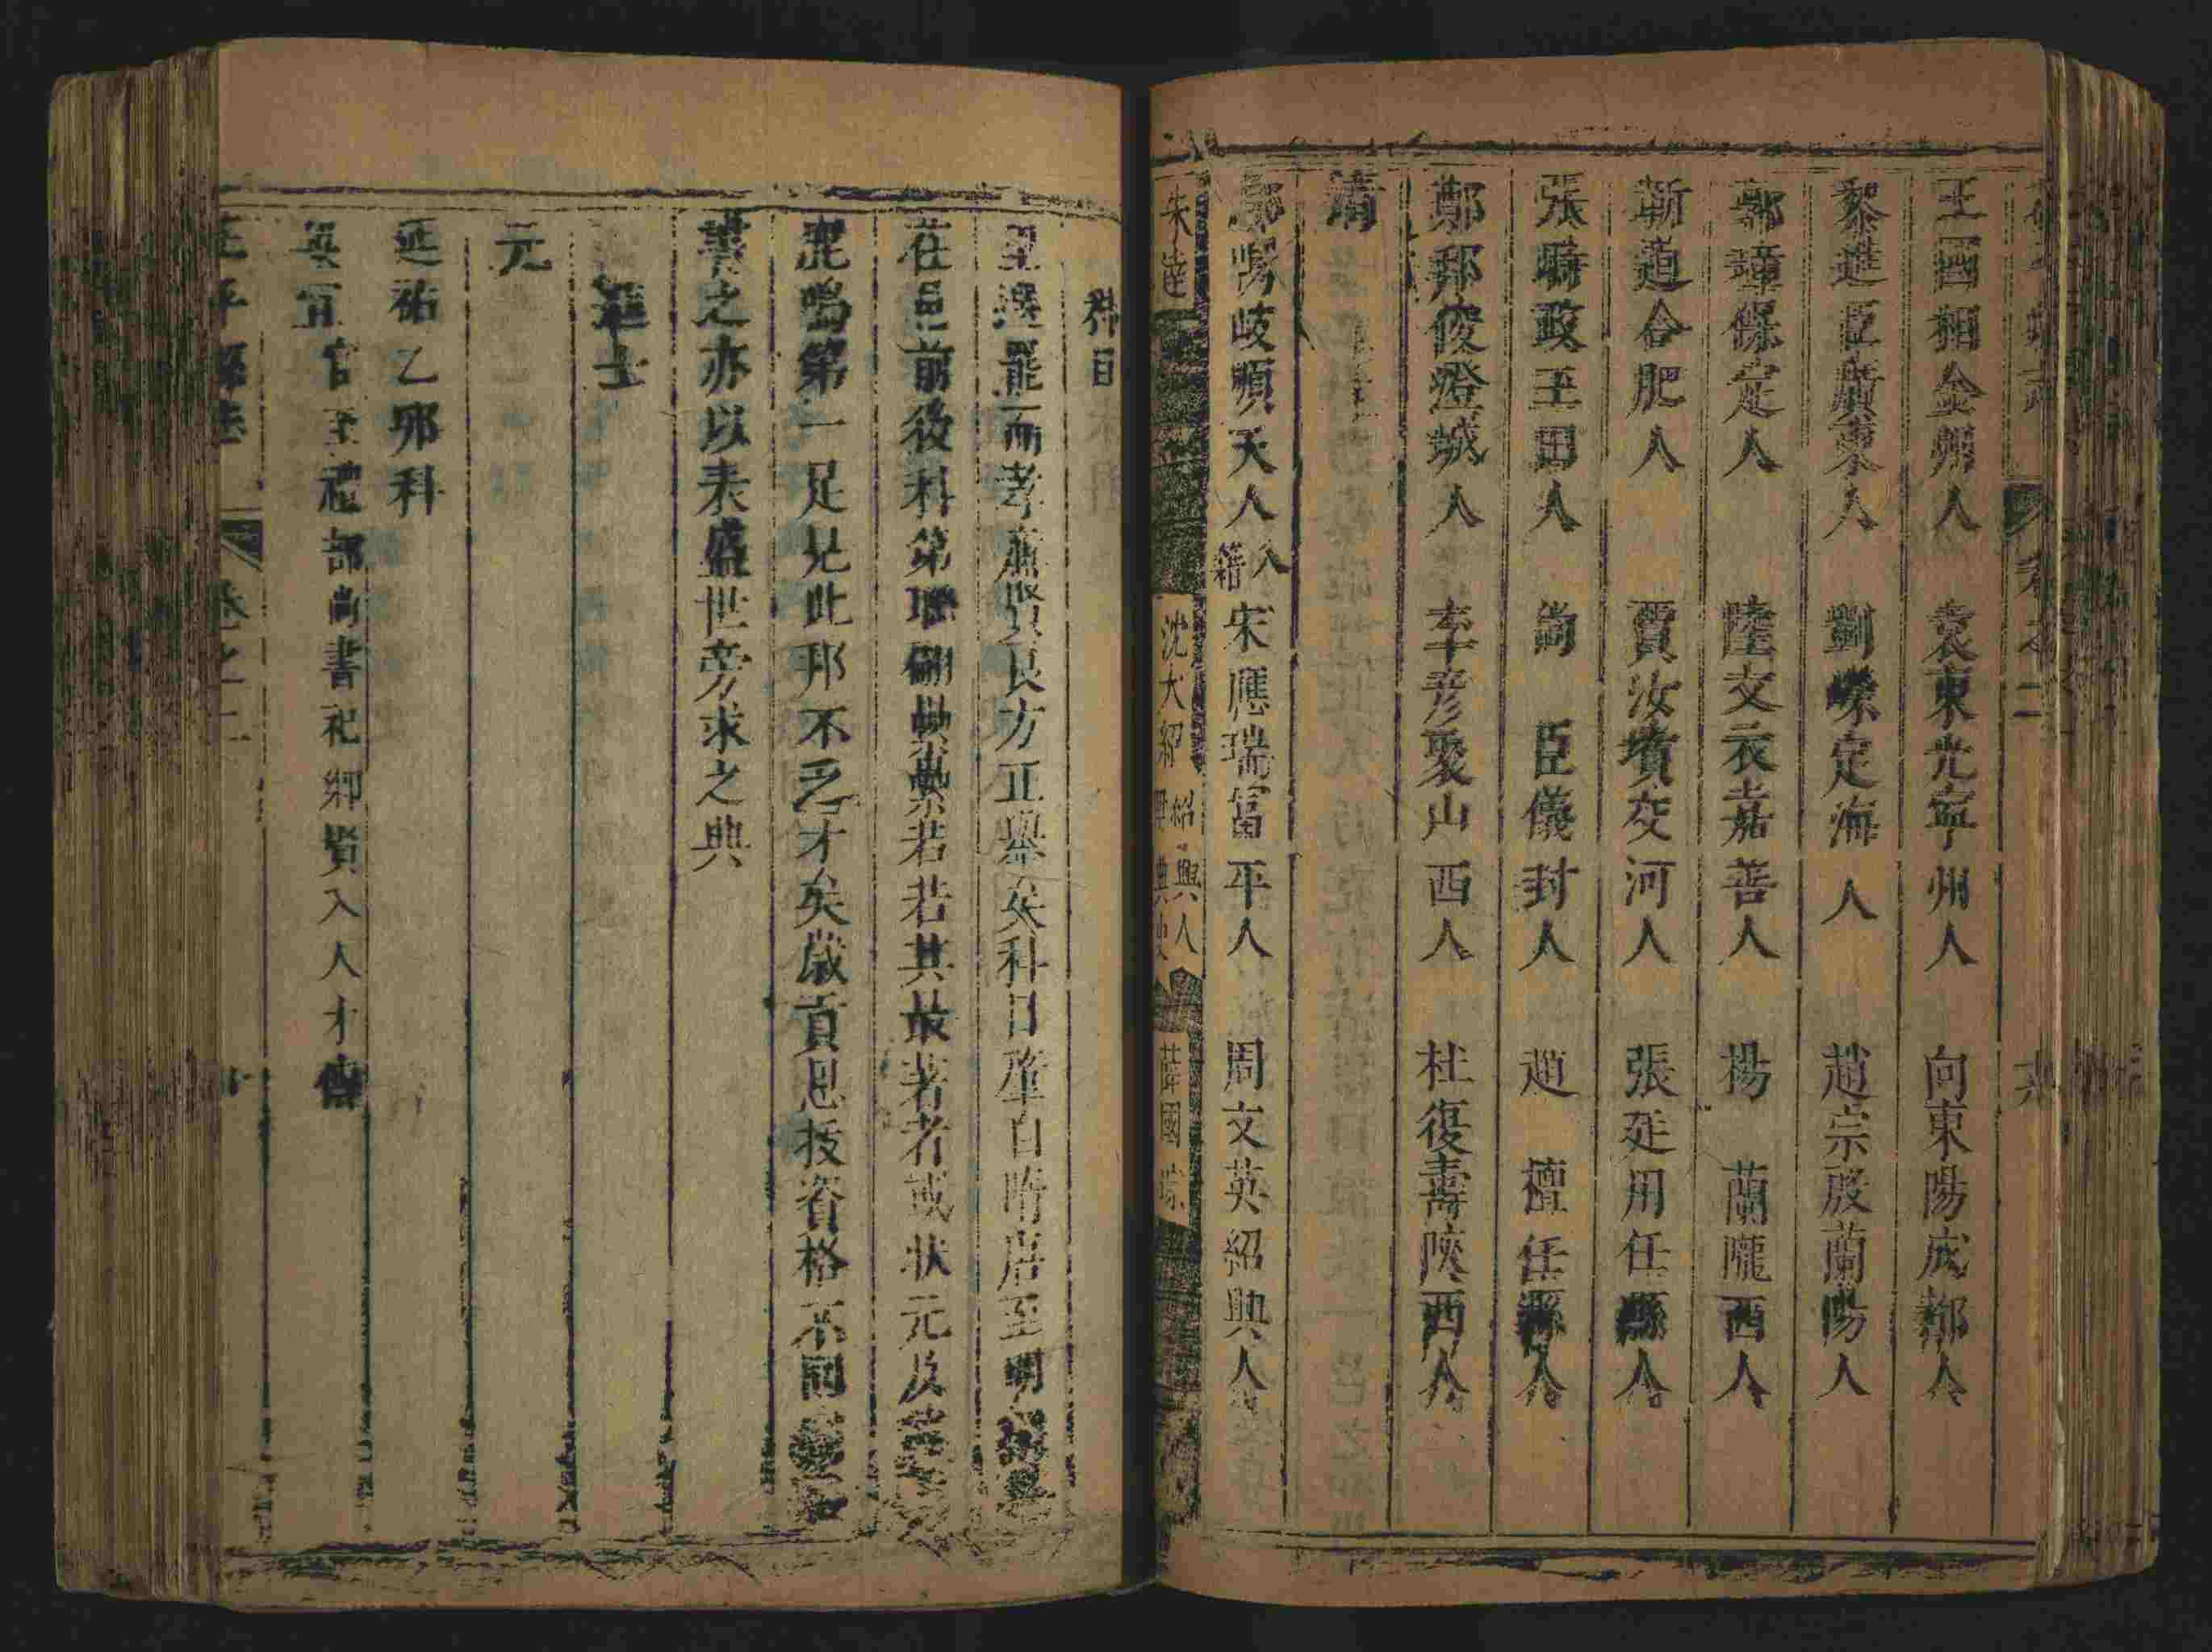 卷之二
王國相金州人 袁東光寧州人 向東陽成都人
黎進臣廣東人 劉嶸定海人 趙宗殷蘭陽人
郭璋保定人 陸文衣嘉善人 楊蘭隴西人
靳道合肥人 賈汝墳交河人 張延用任縣人
張騎政玉田人 尚臣儀封人 趙檀任縣人
鄭邦俊澄城人 李彥聚山西人 杜復壽陝西人
清
順天人人籍 宋應瑞富平人 周文英紹興人
朱達 沈大紹 紹興人 典史 薛國
科目
里選罷而孝廉賢良方正舉矣科目肇自隋唐至明
在邑前後科第聯翩 若若其最著者或状元及
鹿鳴第一足見此邦不乏才矣歲貢恩拔資格不同
書之亦以表盛世旁求之典
進士
元
延祐乙夘科
官至禮部尚書祀鄉賢入人才傳
平縣志 卷之二